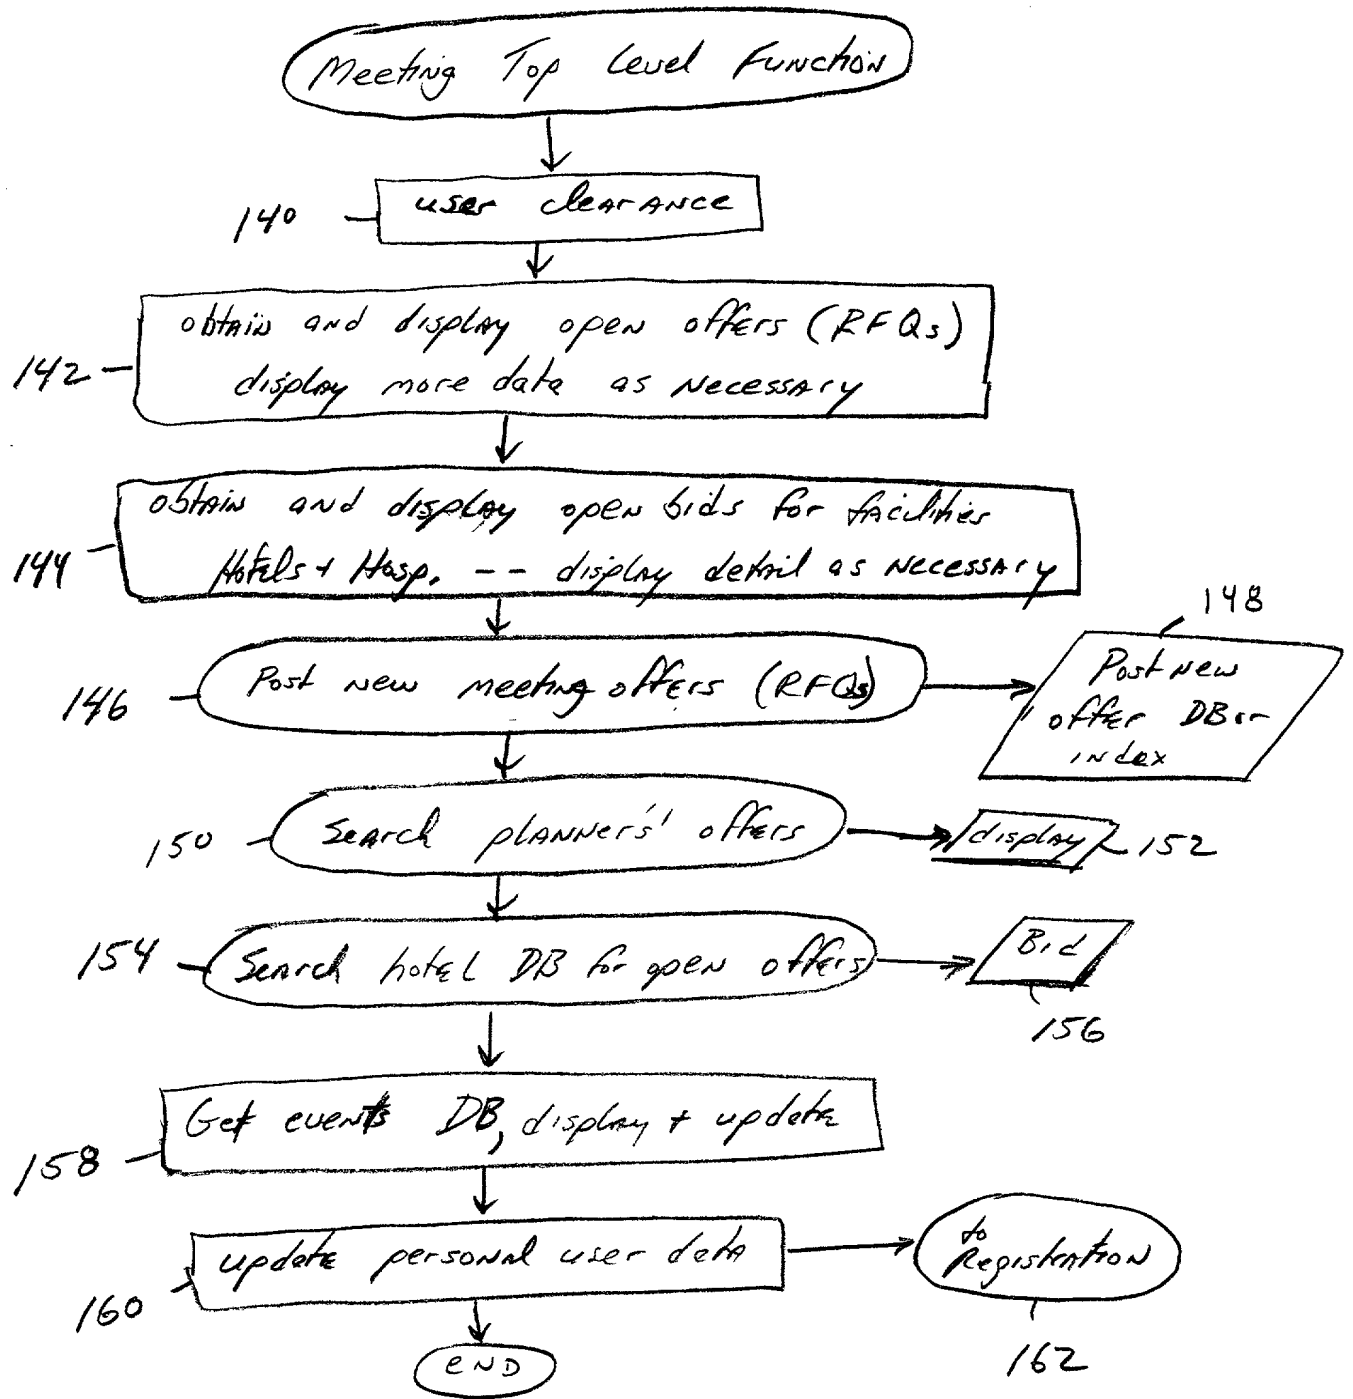 Meeting Top Level Function
140
user clearance
142
obtain and display open offers (RFQs)
display more data as necessary
144
obtain and display open bids for facilities
Hotels + Hosp. -- display detail as necessary
146
Post new meeting offers (RFQs)
148
Post new
offer DB or
index
150
Search planners' offers
display
152
154
Search hotel DB for open offers
Bid
156
158
Get events DB, display + update
160
update personal user data
to
Registration
162
END